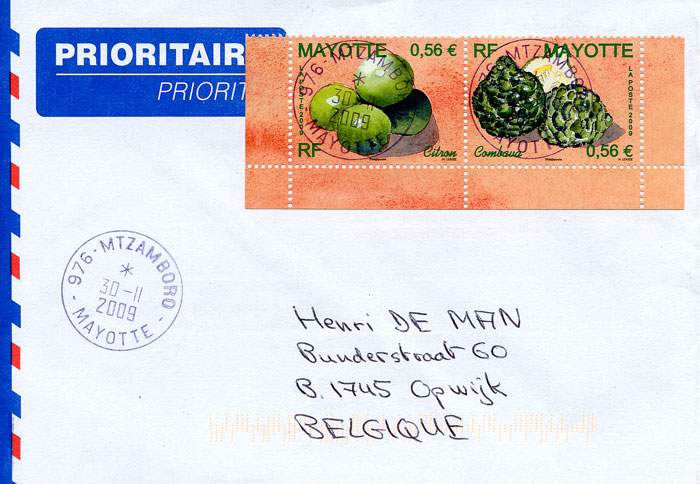 PRIORITAIR
PRIORIT
MAYOTTE 0,56 €
LA POSTE 2009
RF
Citron
976 - MTZAMBORO
*
30-11
2009
MAYOTTE
RF MAYOTTE
LA POSTE 2009
Combava
0,56 €
976 - MTZAMBORO
MAYOTTE
- 976 - MTZAMBORO -
*
30-11
2009
MAYOTTE
Henri DE MAN
Bunderstraat 60
B. 1745 Opwijk
BELGIQUE